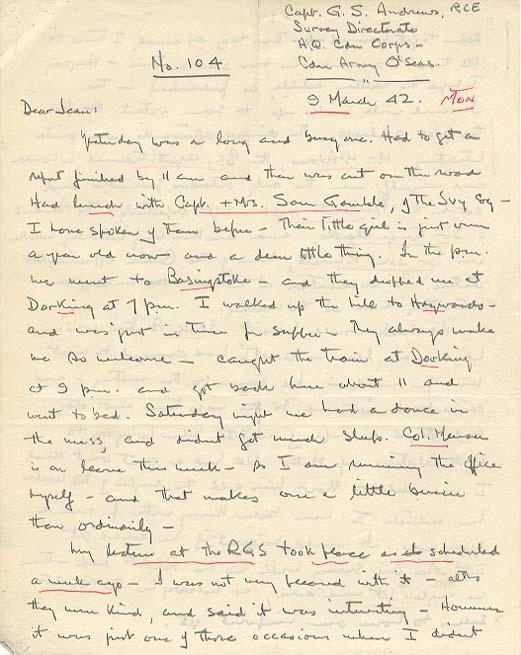 Capt. G. S. Andrews, RCE
Survey Directorate
H.Q. Cdn Corps -
Cdn Army O'Seas.
No. 104
9 March 42. MON
Dear Jean:
Yesterday was a long and busy one. Had to get a
report finished by 11 am and then was out on the road
Had lunch with Capt. + Mrs. Sam Gamble, of the Svy Coy -
I have spoken of them before - Their little girl is just over
a year old now and a dear little thing. In the p.m.
we went to Basingstoke - and they dropped me at
Dorking at 7 p.m. I walked up the hill to Haywards -
and was just in time for supper - They always make
me so welcome - caught the train at Dorking
at 9 p.m. and got back here about 11 and
went to bed. Saturday night we had a dance in
the mess, and didnt get much sleep. Col.
is on leave this week - so I am running the office
myself - and that makes one a little busier
than ordinarily -
My lecture at the RGS took place as scheduled
a week ago - I was not very pleased with it - altho
they were kind, and said it was interesting - However
it was just one of those occasions when I didnt